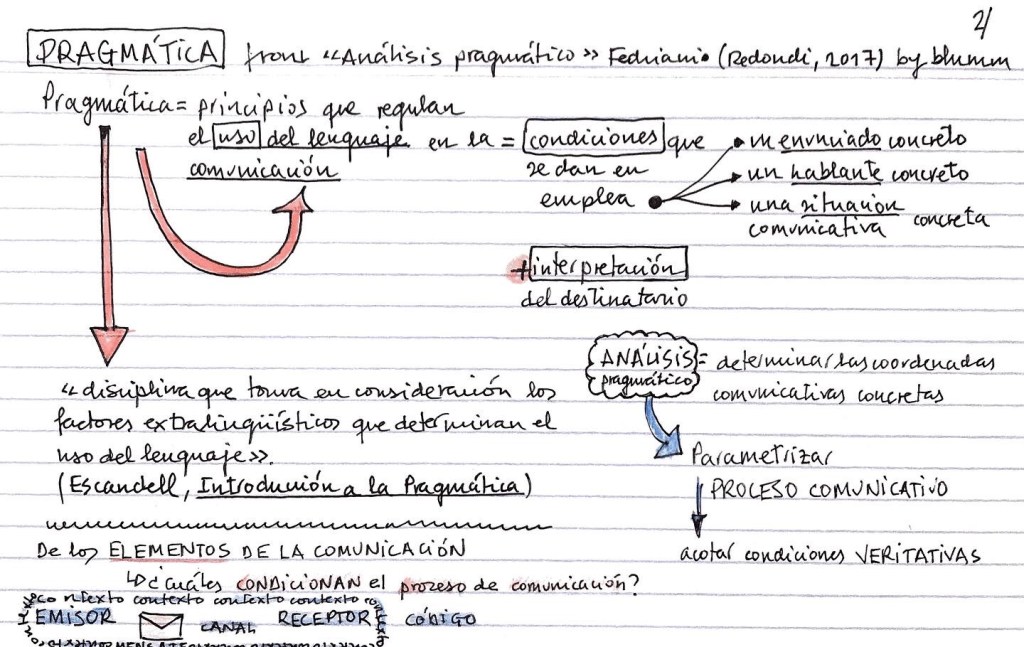 2/
PRAGMÁTICA from "Análisis pragmático" Fedriani. (Redondi, 2017) by blumm
Pragmática = principios que regulan
el uso del lenguaje en la
comunicación
= condiciones que
se dan en
emplea
un enunciado concreto
un hablante concreto
una situación
comunicativa concreta
+ interpretación
del destinatario
"disciplina que toma en consideración los
factores extralingüísticos que determinan el
uso del lenguaje".
(Escandell, Introducción a la Pragmática)
ANÁLISIS = determinar las coordenadas
pragmático comunicativas concretas
Parametrizar
PROCESO COMUNICATIVO
acotar condiciones VERITATIVAS
De los ELEMENTOS DE LA COMUNICACIÓN
¿cuáles CONDICIONAN el prozeso de comunicación?
contexto contexto contexto contexto
EMISOR CANAL RECEPTOR CÓDIGO
MENSAJE